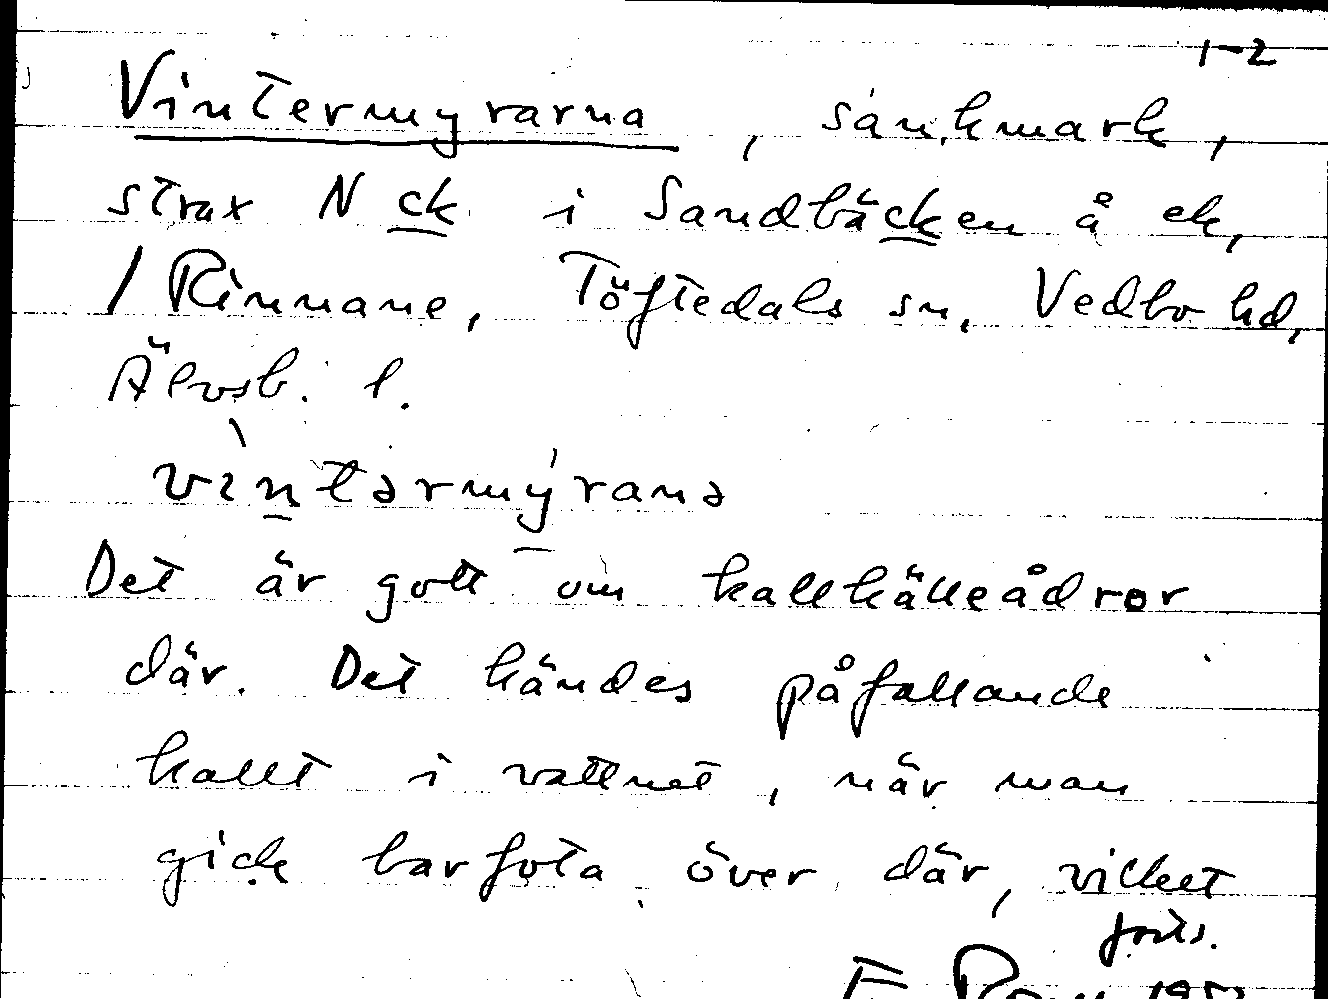 1-2
Vintermyrarna, sänkmark,
strax N ck i Sandbäcken å ek,
/ Rinnane, Töftedals sn, Vedbo hd,
Älvsb. l.
vìntərmý̱ranə
Det är gott om kallkälleådror
där. Det kändes påfallande
kallt i vattnet, när man
gick barfota över där, vilket
forts.